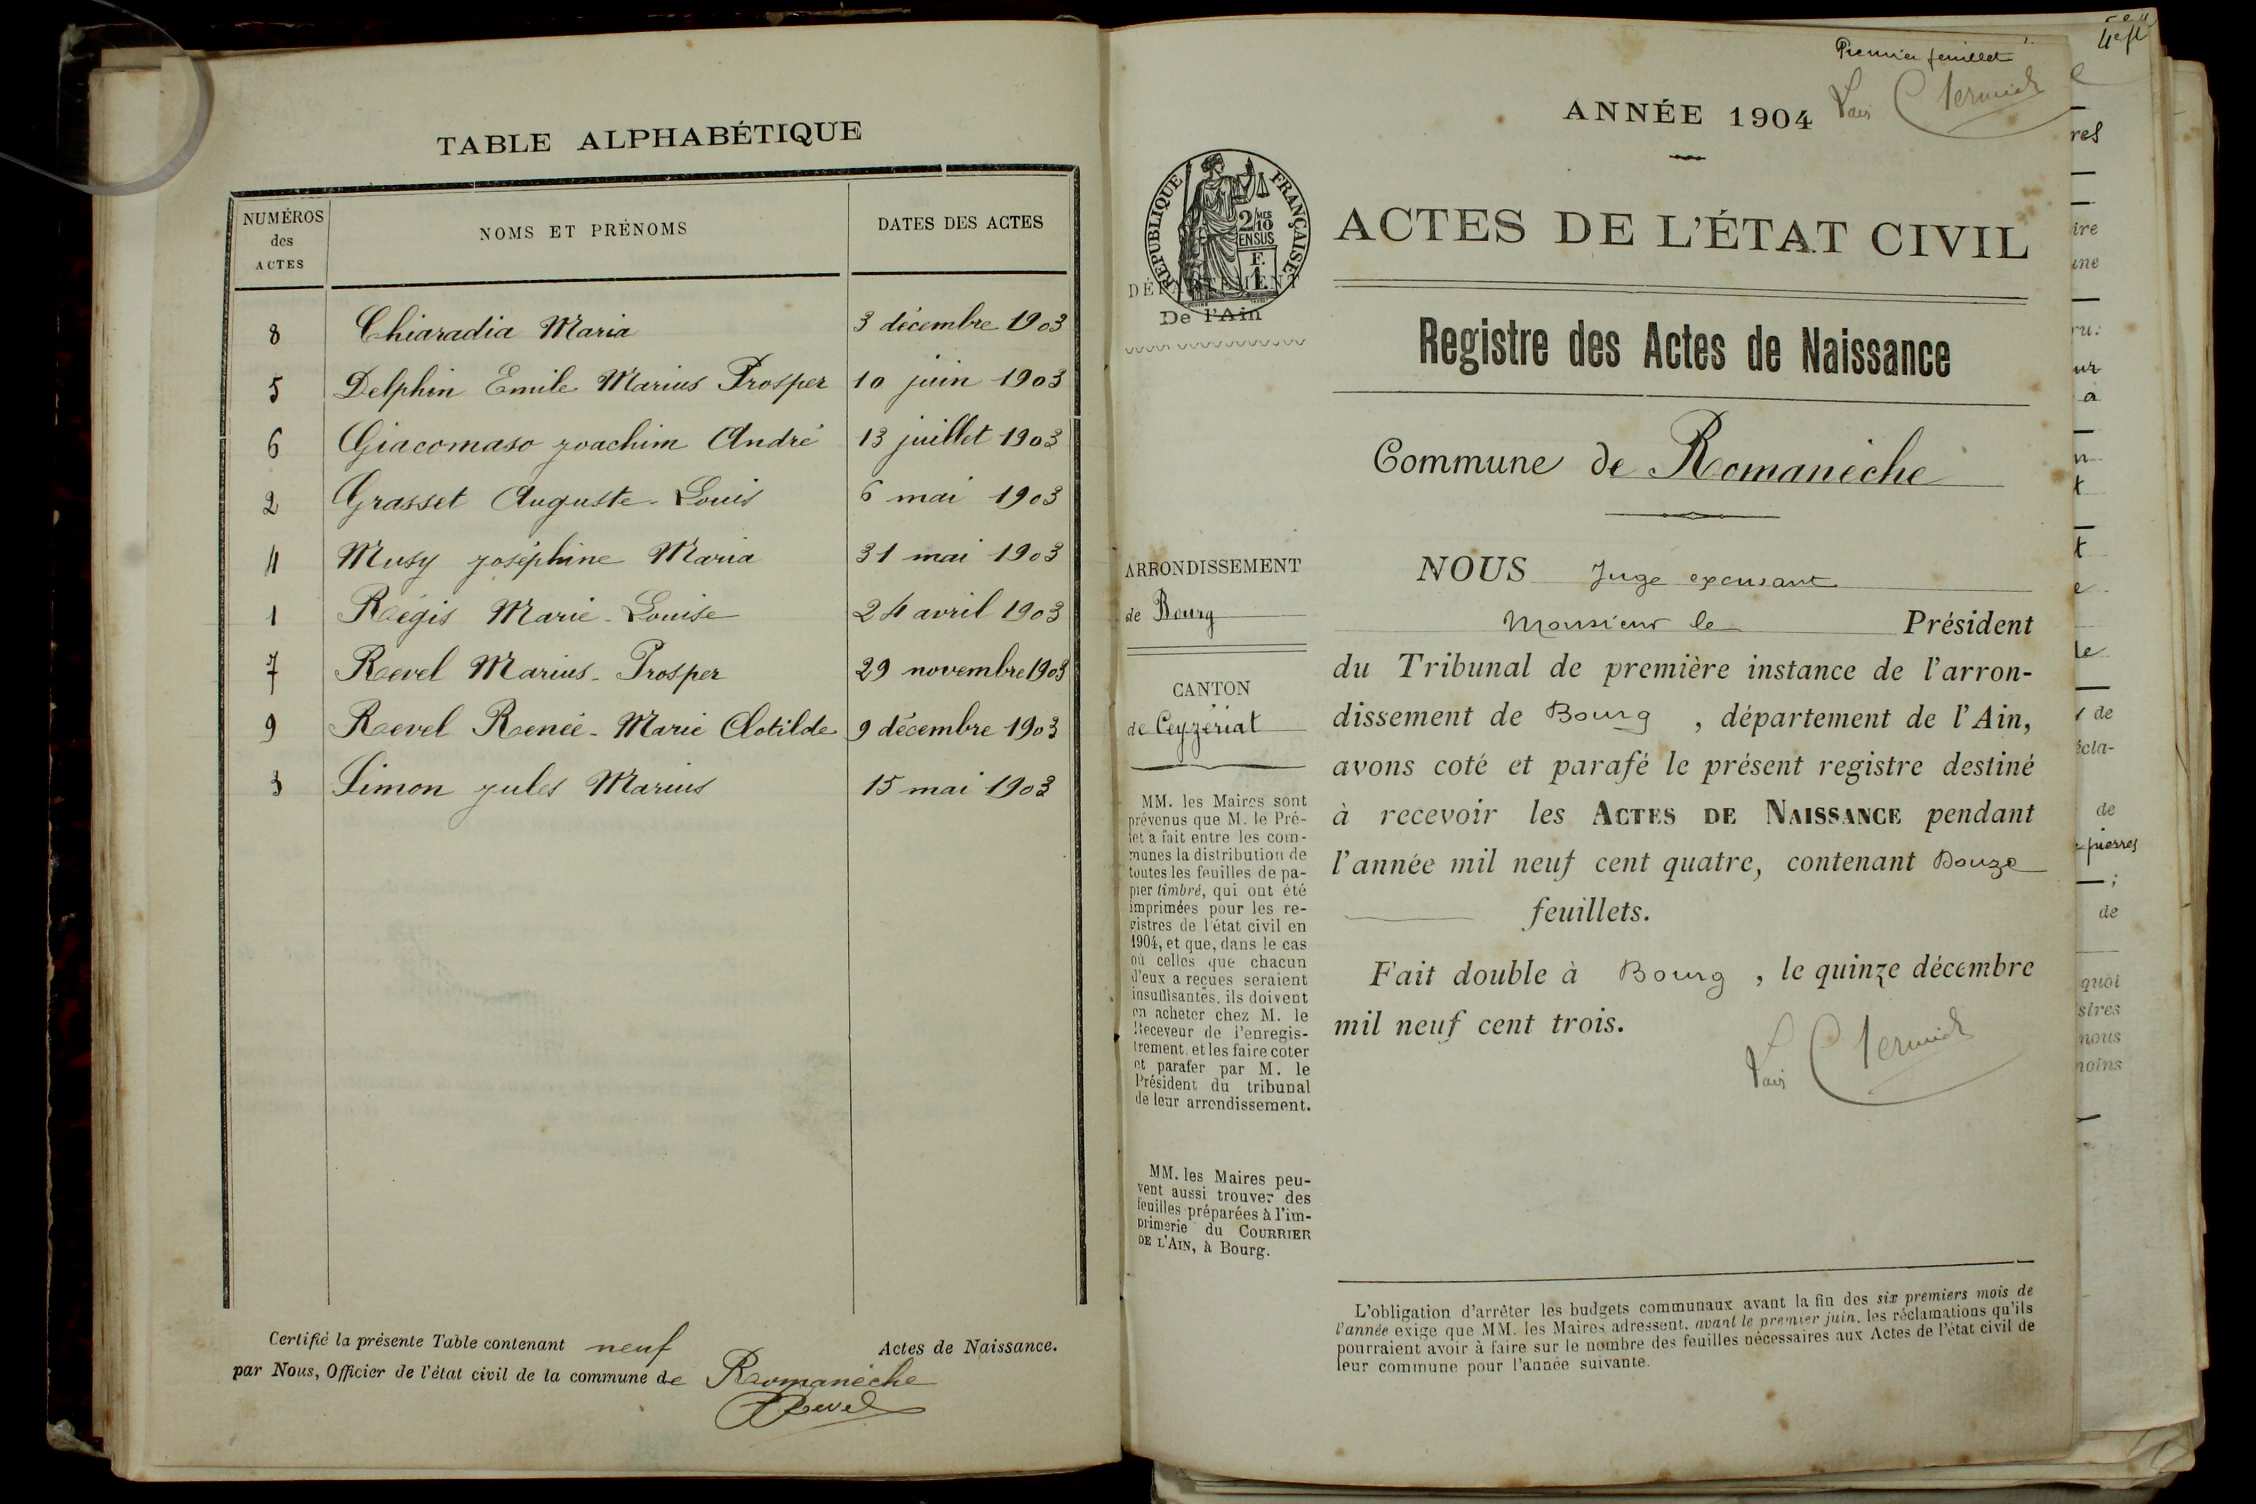 TABLE ALPHABÉTIQUE
NUMÉROS des ACTES
NOMS ET PRÉNOMS
DATES DES ACTES
8 Chiaradia Maria 3 décembre 1903
5 Delphin Emile Marius Prosper 10 juin 1903
6 Giacomaso joachim André 13 juillet 1903
2 Grasset Auguste-Louis 6 mai 1903
4 Musy joséphine Maria 31 mai 1903
1 Régis Marie-Louise 24 avril 1903
7 Revel Marius-Prosper 29 novembre 1903
9 Revel Renée-Marie Clotilde 9 décembre 1903
3 Simon jules Marius 15 mai 1903
Certifié la présente Table contenant neuf Actes de Naissance.
par Nous, Officier de l'état civil de la commune de Romanèche
Revel
Premier feuillet
ANNÉE 1904
RÉPUBLIQUE FRANÇAISE
2/10 MES
EN SUS
1 F.
DÉPARTEMENT
De l'Ain
ACTES DE L'ÉTAT CIVIL
Registre des Actes de Naissance
Commune de Romanèche
ARRONDISSEMENT
de Bourg
CANTON
de Ceyzériat
MM. les Maires sont
prévenus que M. le Pré-
fet a fait entre les com-
munes la distribution de
toutes les feuilles de pa-
pier timbré, qui ont été
imprimées pour les re-
gistres de l'état civil en
1904, et que, dans le cas
où celles que chacun
d'eux a reçues seraient
insuffisantes, ils doivent
en acheter chez M. le
Receveur de l'enregis-
trement, et les faire coter
et parafer par M. le
Président du tribunal
de leur arrondissement.
MM. les Maires peu-
vent aussi trouver des
feuilles préparées à l'im-
primerie du COURRIER
DE L'AIN, à Bourg.
NOUS Juge excusant
Monsieur le Président
du Tribunal de première instance de l'arron-
dissement de Bourg, département de l'Ain,
avons coté et parafé le présent registre destiné
à recevoir les ACTES DE NAISSANCE pendant
l'année mil neuf cent quatre, contenant Douze
feuillets.
Fait double à Bourg, le quinze décembre
mil neuf cent trois.
L'obligation d'arrêter les budgets communaux avant la fin des six premiers mois de
l'année exige que MM. les Maires adressent, avant le premier juin, les réclamations qu'ils
pourraient avoir à faire sur le nombre des feuilles nécessaires aux Actes de l'état civil de
leur commune pour l'année suivante.